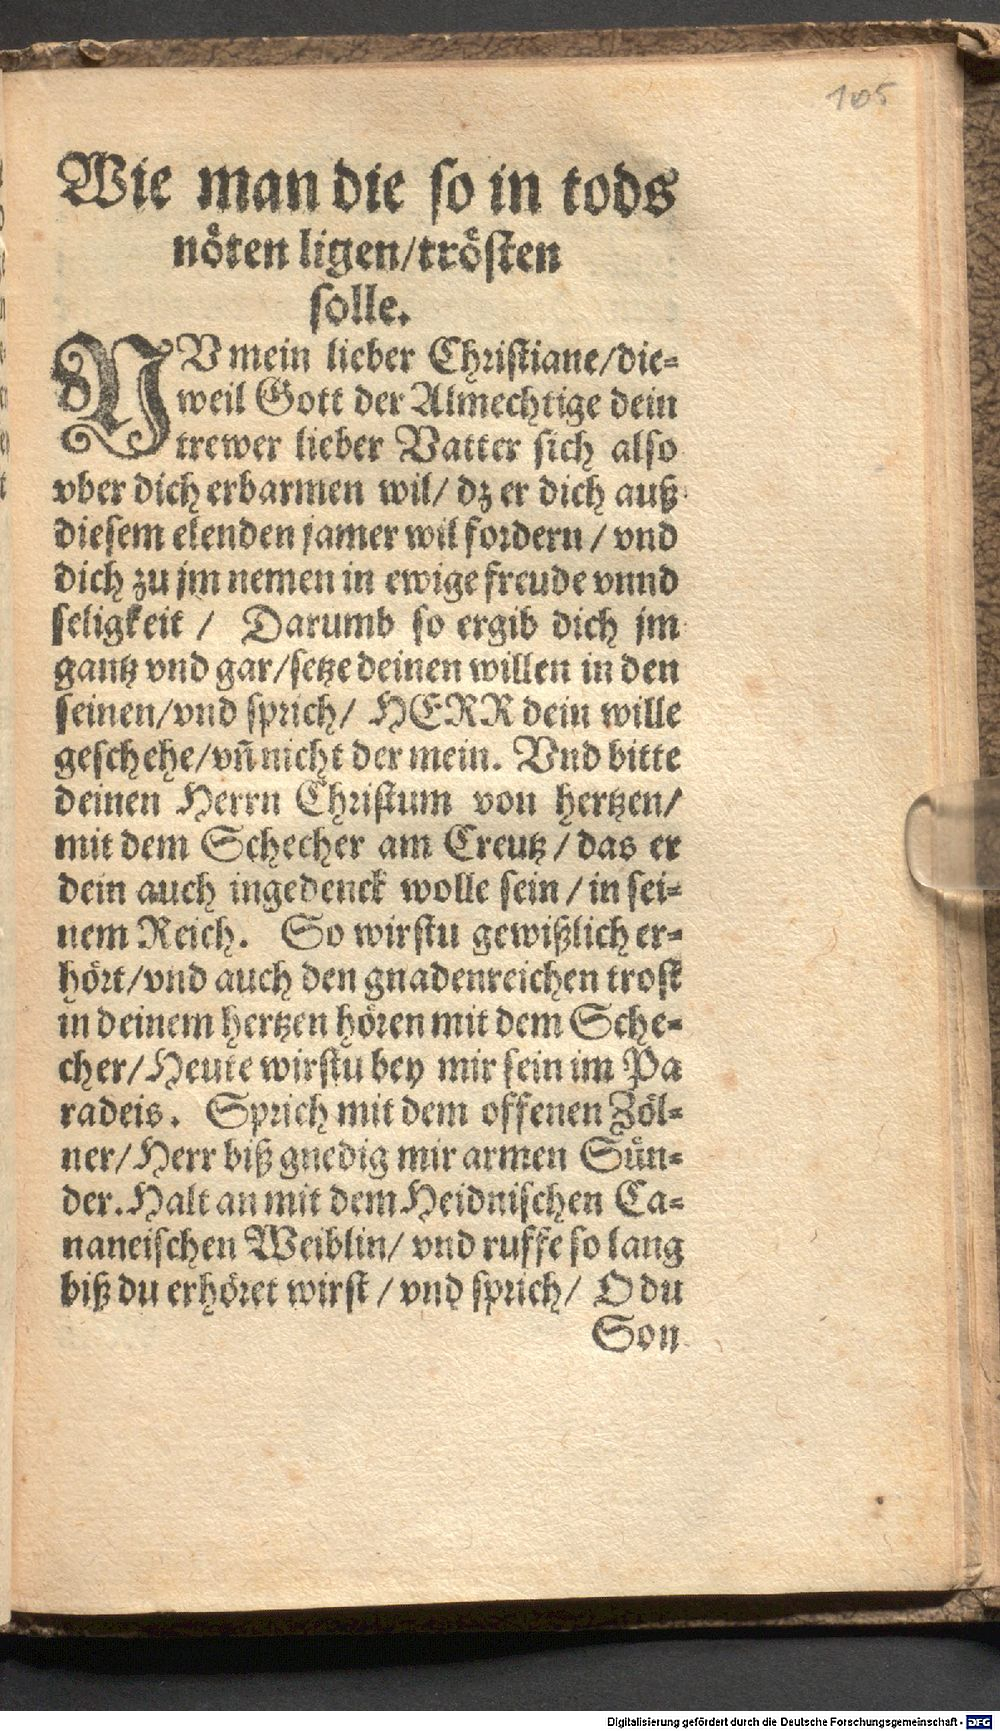 105
Wie man die so in tods
nöten ligen/trösten
solle.
NV mein lieber Christiane/die⸗
weil Gott der Almechtige dein
trewer lieber Vatter sich also
vber dich erbarmen wil/ dz er dich auß
diesem elenden jamer wil fordern / vnd
dich zu jm nemen in ewige freude vnnd
seligkeit / Darumb so ergib dich jm
gantz vnd gar/setze deinen willen in den
seinen/vnd sprich/ HERR dein wille
geschehe/vn̄ nicht der mein. Vnd bitte
deinen Herrn Christum von hertzen/
mit dem Schecher am Creutz / das er
dein auch ingedenck wolle sein / in sei⸗
nem Reich. So wirstu gewißlich er⸗
hört/vnd auch den gnadenreichen trost
in deinem hertzen hören mit dem Sche⸗
cher/Heute wirstu bey mir sein im Pa
radeis. Sprich mit dem offenen Zöl⸗
ner/Herr biß gnedig mir armen Sün⸗
der. Halt an mit dem Heidnischen Ca⸗
naneischen Weiblin/ vnd ruffe so lang
biß du erhöret wirst / vnd sprich/ O du
Son
Digitalisierung gefördert durch die Deutsche Forschungsgemeinschaft - DFG